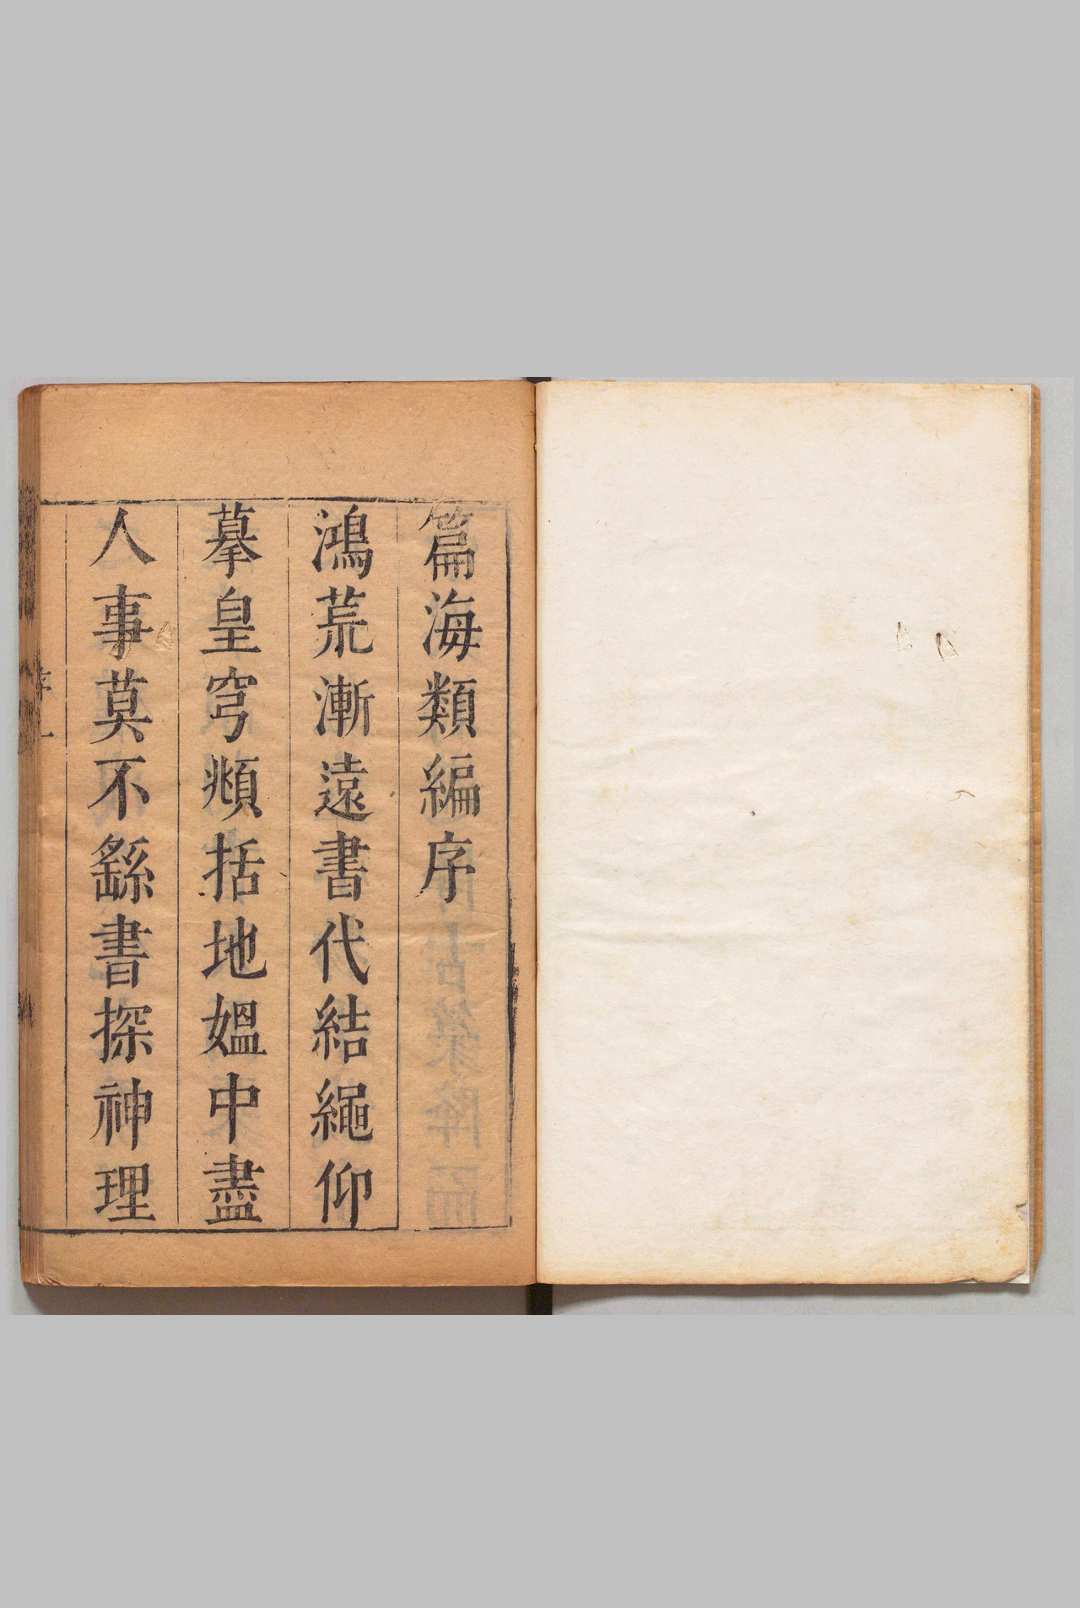 篇海類編序
鴻荒漸遠書代結繩仰
摹皇穹頫括地媼中盡
人事莫不繇書探神理
序一